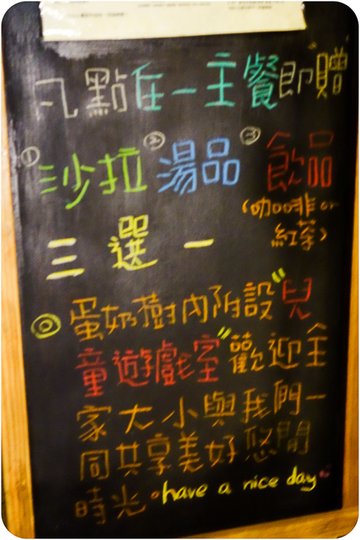 凡點任一主餐即贈
①沙拉 ②湯品 ③飲品
(咖啡 or
紅茶)
三選一
◎蛋奶樹內附設"兒
童遊戲室"歡迎全
家大小與我們一
同共享美好悠閒
時光 have a nice day